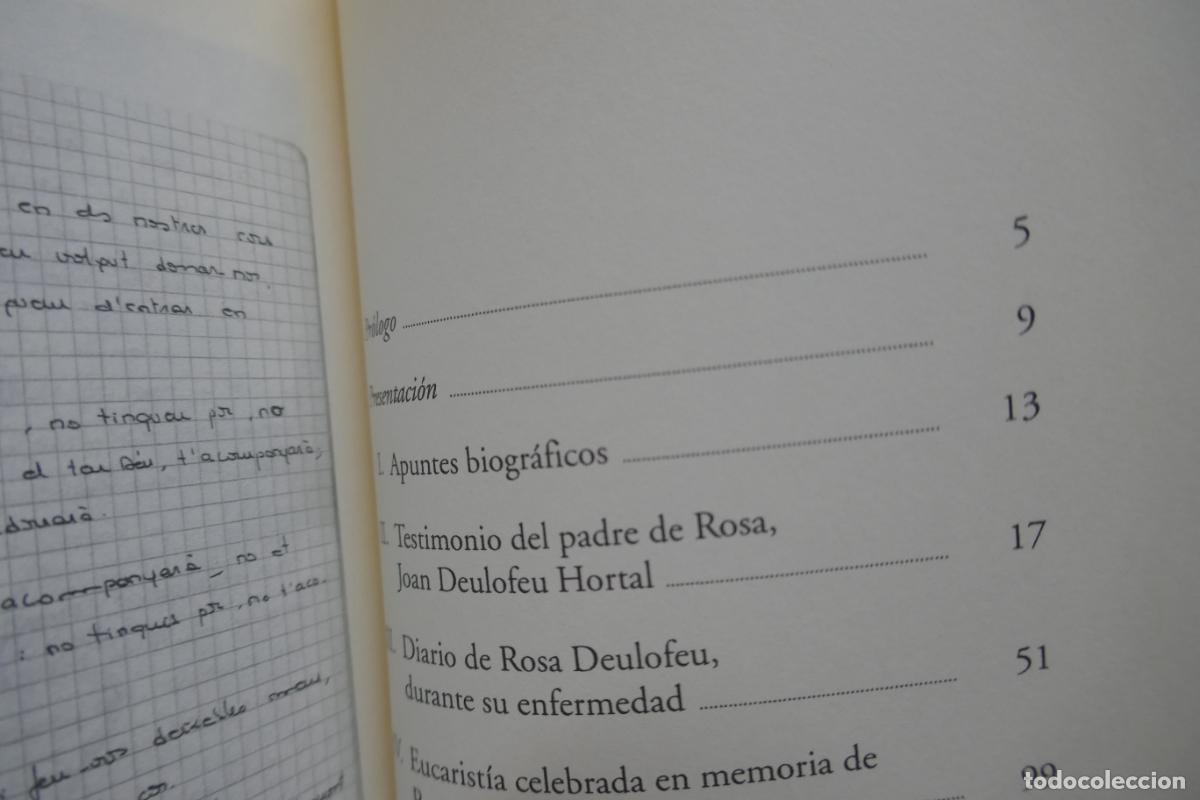 en els nostres cors
volgut donar-nos.
d'entrar en
, no tingueu por, no
el teu Déu, t'acompanyarà,
acompanyarà, no et
: no tingues por, no t'aco-
Prólogo 5
Presentación 9
I. Apuntes biográficos 13
II. Testimonio del padre de Rosa,
Joan Deulofeu Hortal 17
III. Diario de Rosa Deulofeu,
durante su enfermedad 51
IV. Eucaristía celebrada en memoria de
todocoleccion